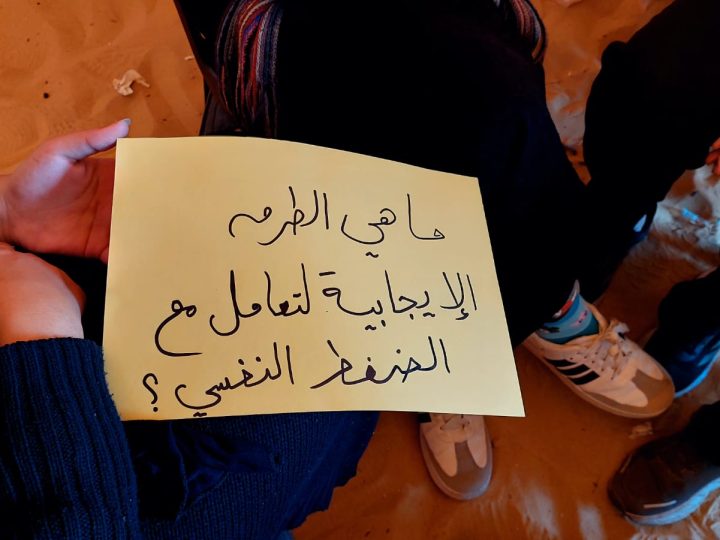 ما هي الطرق
الإيجابية لتعامل مع
الضغط النفسي ؟